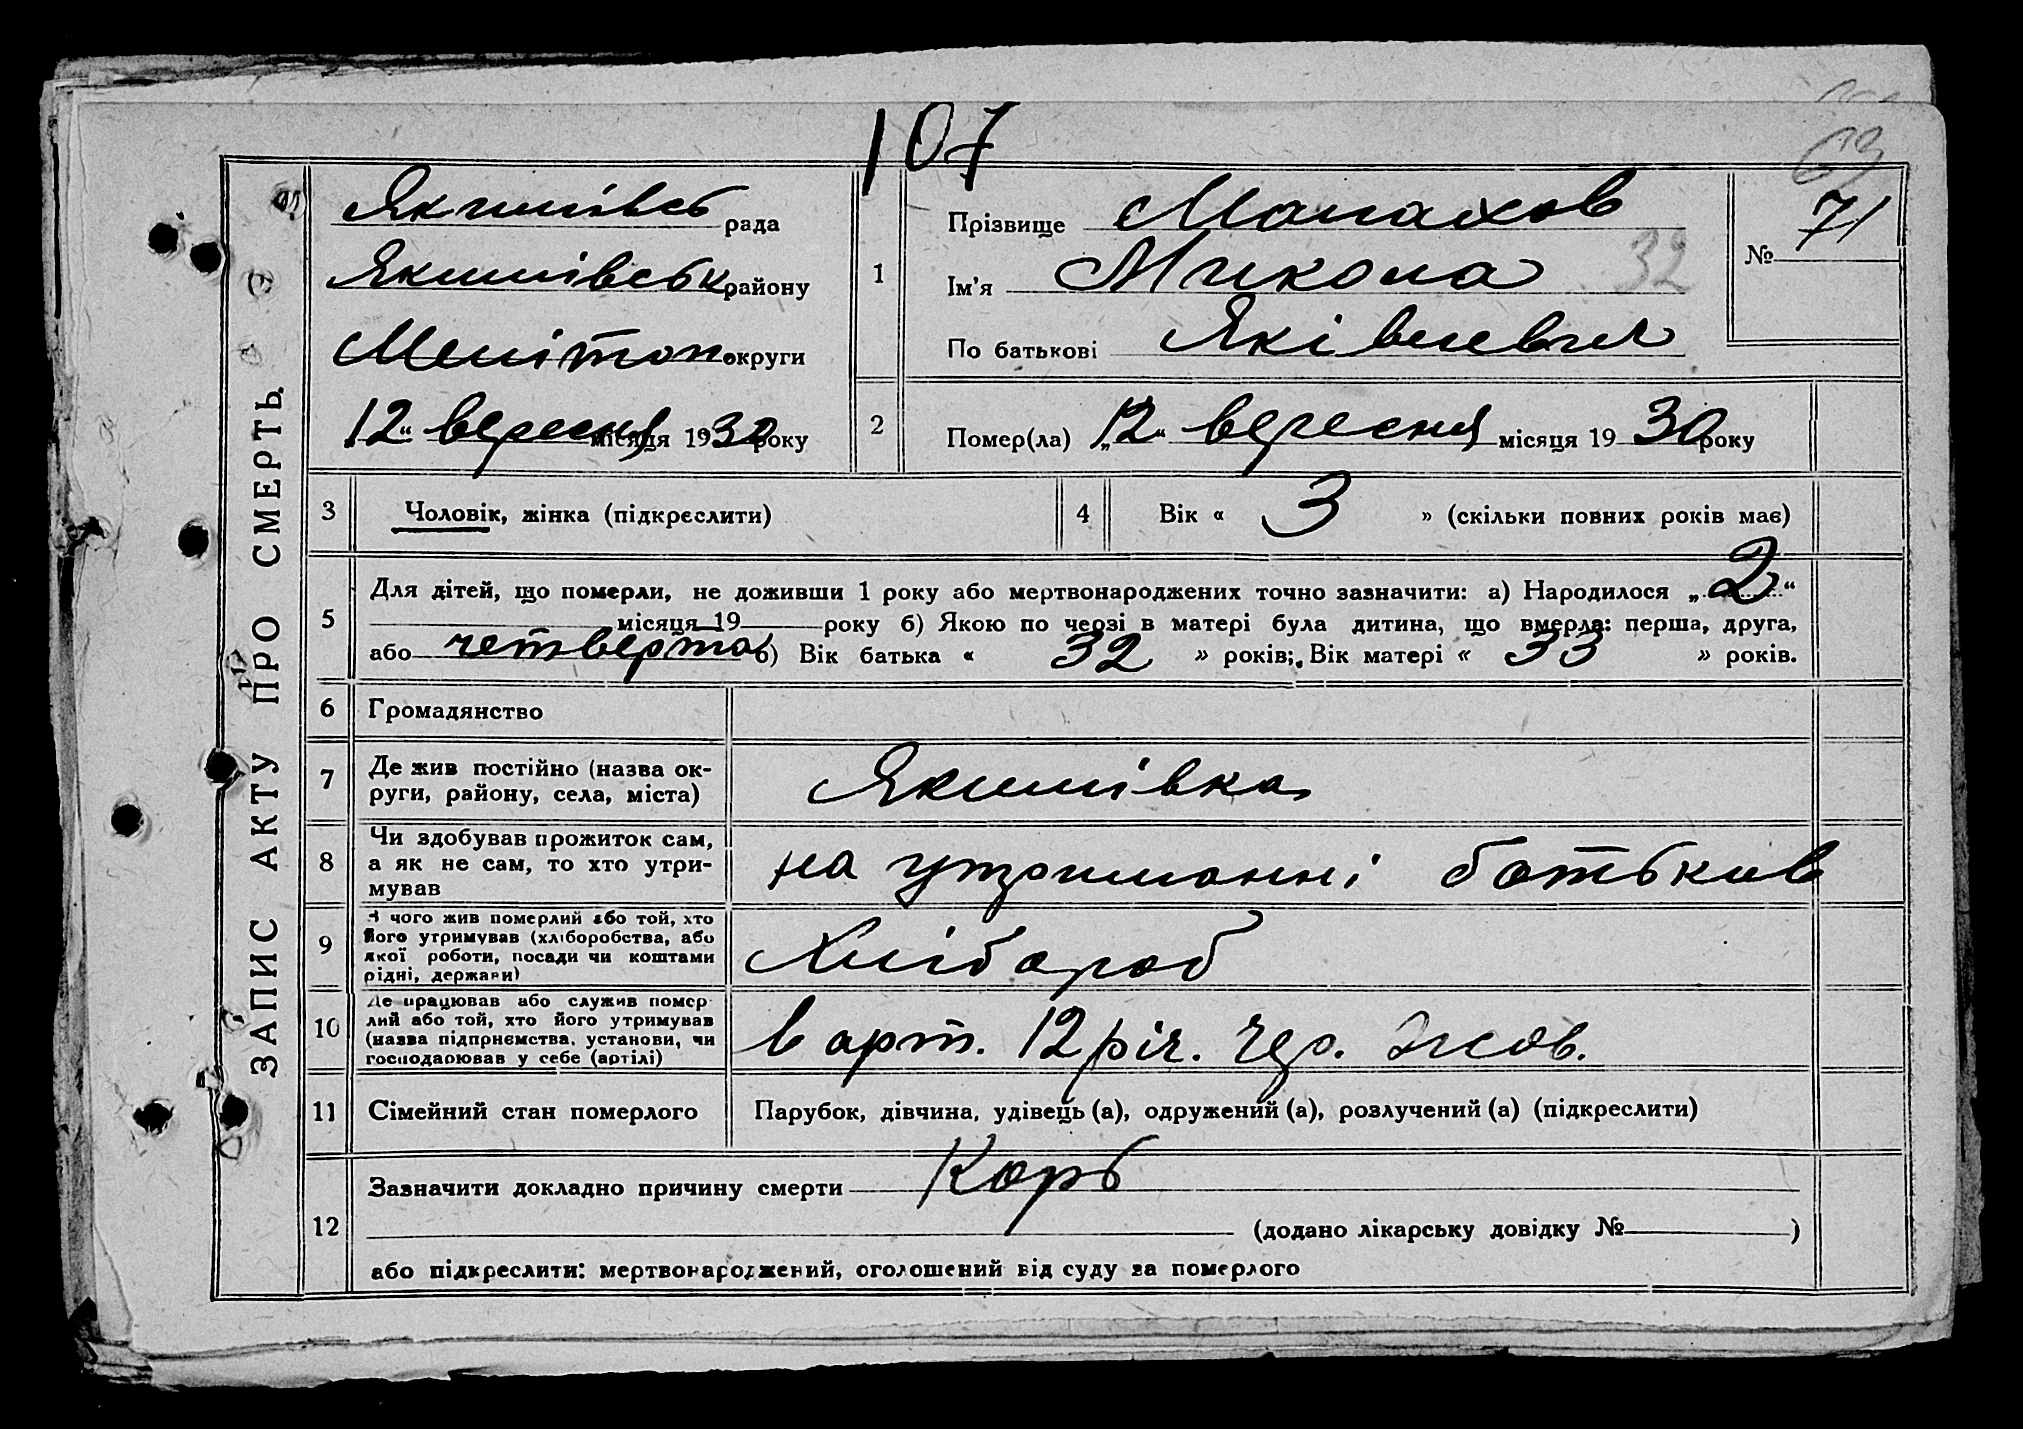 107
63
ЗАПИС АКТУ ПРО СМЕРТЬ.
Якимівсь рада
Якимівськ району
Мелітоп округи
12 " вересня місяця 1930 року
1
Прізвище Малахов
Ім'я Микола 32
По батькові Яківлевич
№ 71
2
Помер(ла) „12" вересня місяця 19 30 року
3 Чоловік, жінка (підкреслити)
4 Вік « 3 » (скільки повних років має)
5
Для дітей, що померли, не доживши 1 року або мертвонароджених точно зазначити: а) Народилося „ 2 "
місяця 19 року б) Якою по черзі в матері була дитина, що вмерла: перша, друга,
або четверта в) Вік батька « 32 » років; Вік матері « 33 » років.
6 Громадянство
7 Де жив постійно (назва ок-
руги, району, села, міста)
Якимівка
8 Чи здобував прожиток сам,
а як не сам, то хто утри-
мував
на утриманні батьків
9 З чого жив померлий або той, хто
його утримував (хліборобства, або
якої роботи, посади чи коштами
рідні, держави)
Хлібороб
10 Де працював або служив помер-
лий або той, хто його утримував
(назва підприємства, установи, чи
господарював у себе (артілі)
в арт. 12 річ. Чер. Жов.
11 Сімейний стан померлого
Парубок, дівчина, удівець (а), одружений (а), розлучений (а) (підкреслити)
12
Зазначити докладно причину смерти Корь
(додано лікарську довідку № )
або підкреслити: мертвонароджений, оголошений від суду за померлого